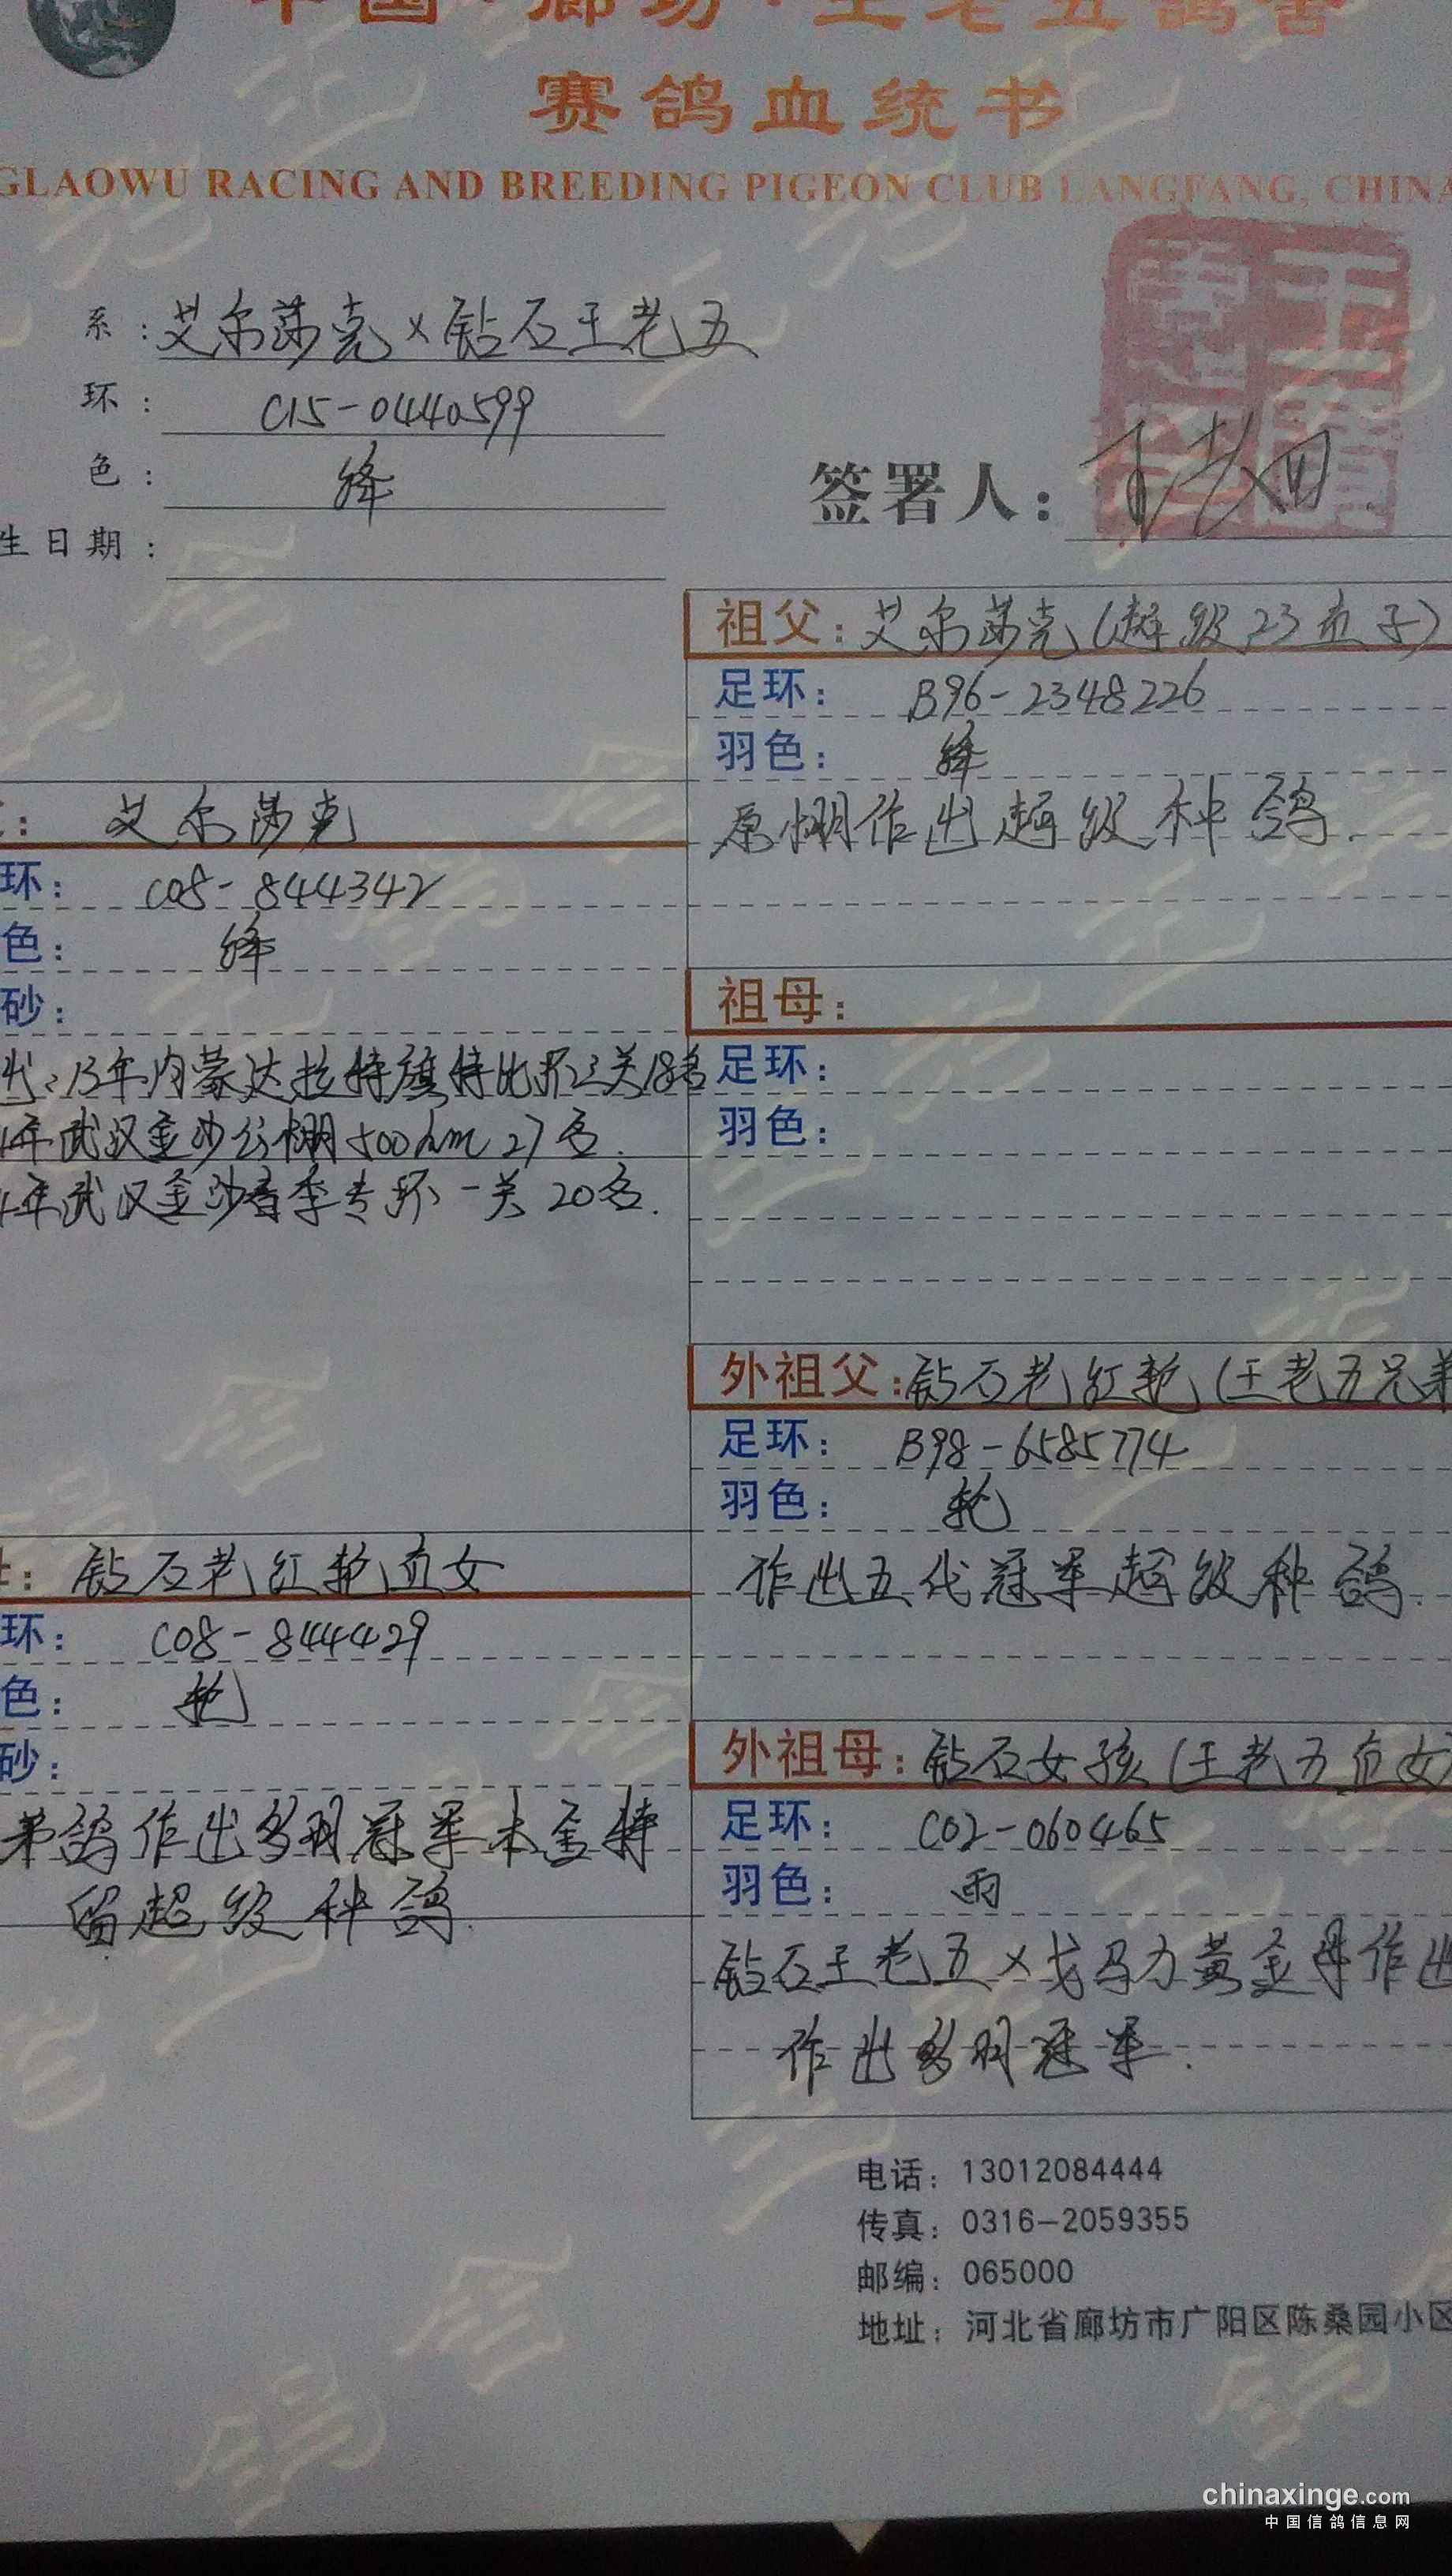 中国·廊坊·王老五鸽舍
赛鸽血统书
GLAOWU RACING AND BREEDING PIGEON CLUB LANGFANG, CHINA
系：艾尔莎克×钻石王老五
环：C15-0440599
色：绛
签署人：
生日期：
祖父：艾尔莎克(超级23直子)
足环：B96-2348226
羽色：绛
原棚作出超级种鸽.
：艾尔莎克
环：C08-844342
色：绛
砂：
出：13年内蒙达拉特旗特比环三关18名
年武汉金沙公棚500km 27名.
4年武汉金沙春季专环一关20名.
祖母：
足环：
羽色：
外祖父：钻石老红轮(王老五兄弟
足环：B98-6585774
羽色：轮
作出五代冠军超级种鸽.
：钻石老红轮直女
环：C08-844429
色：轮
砂：
弟鸽作出多羽冠军本舍特
留超级种鸽.
外祖母：钻石女孩(王老五直女)
足环：C02-060465
羽色：雨
钻石王老五×戈马力黄金母作出
作出多羽冠军.
电话：13012084444
传真：0316-2059355
邮编：065000
地址：河北省廊坊市广阳区陈桑园小区
chinaxinge.com
中国信鸽信息网